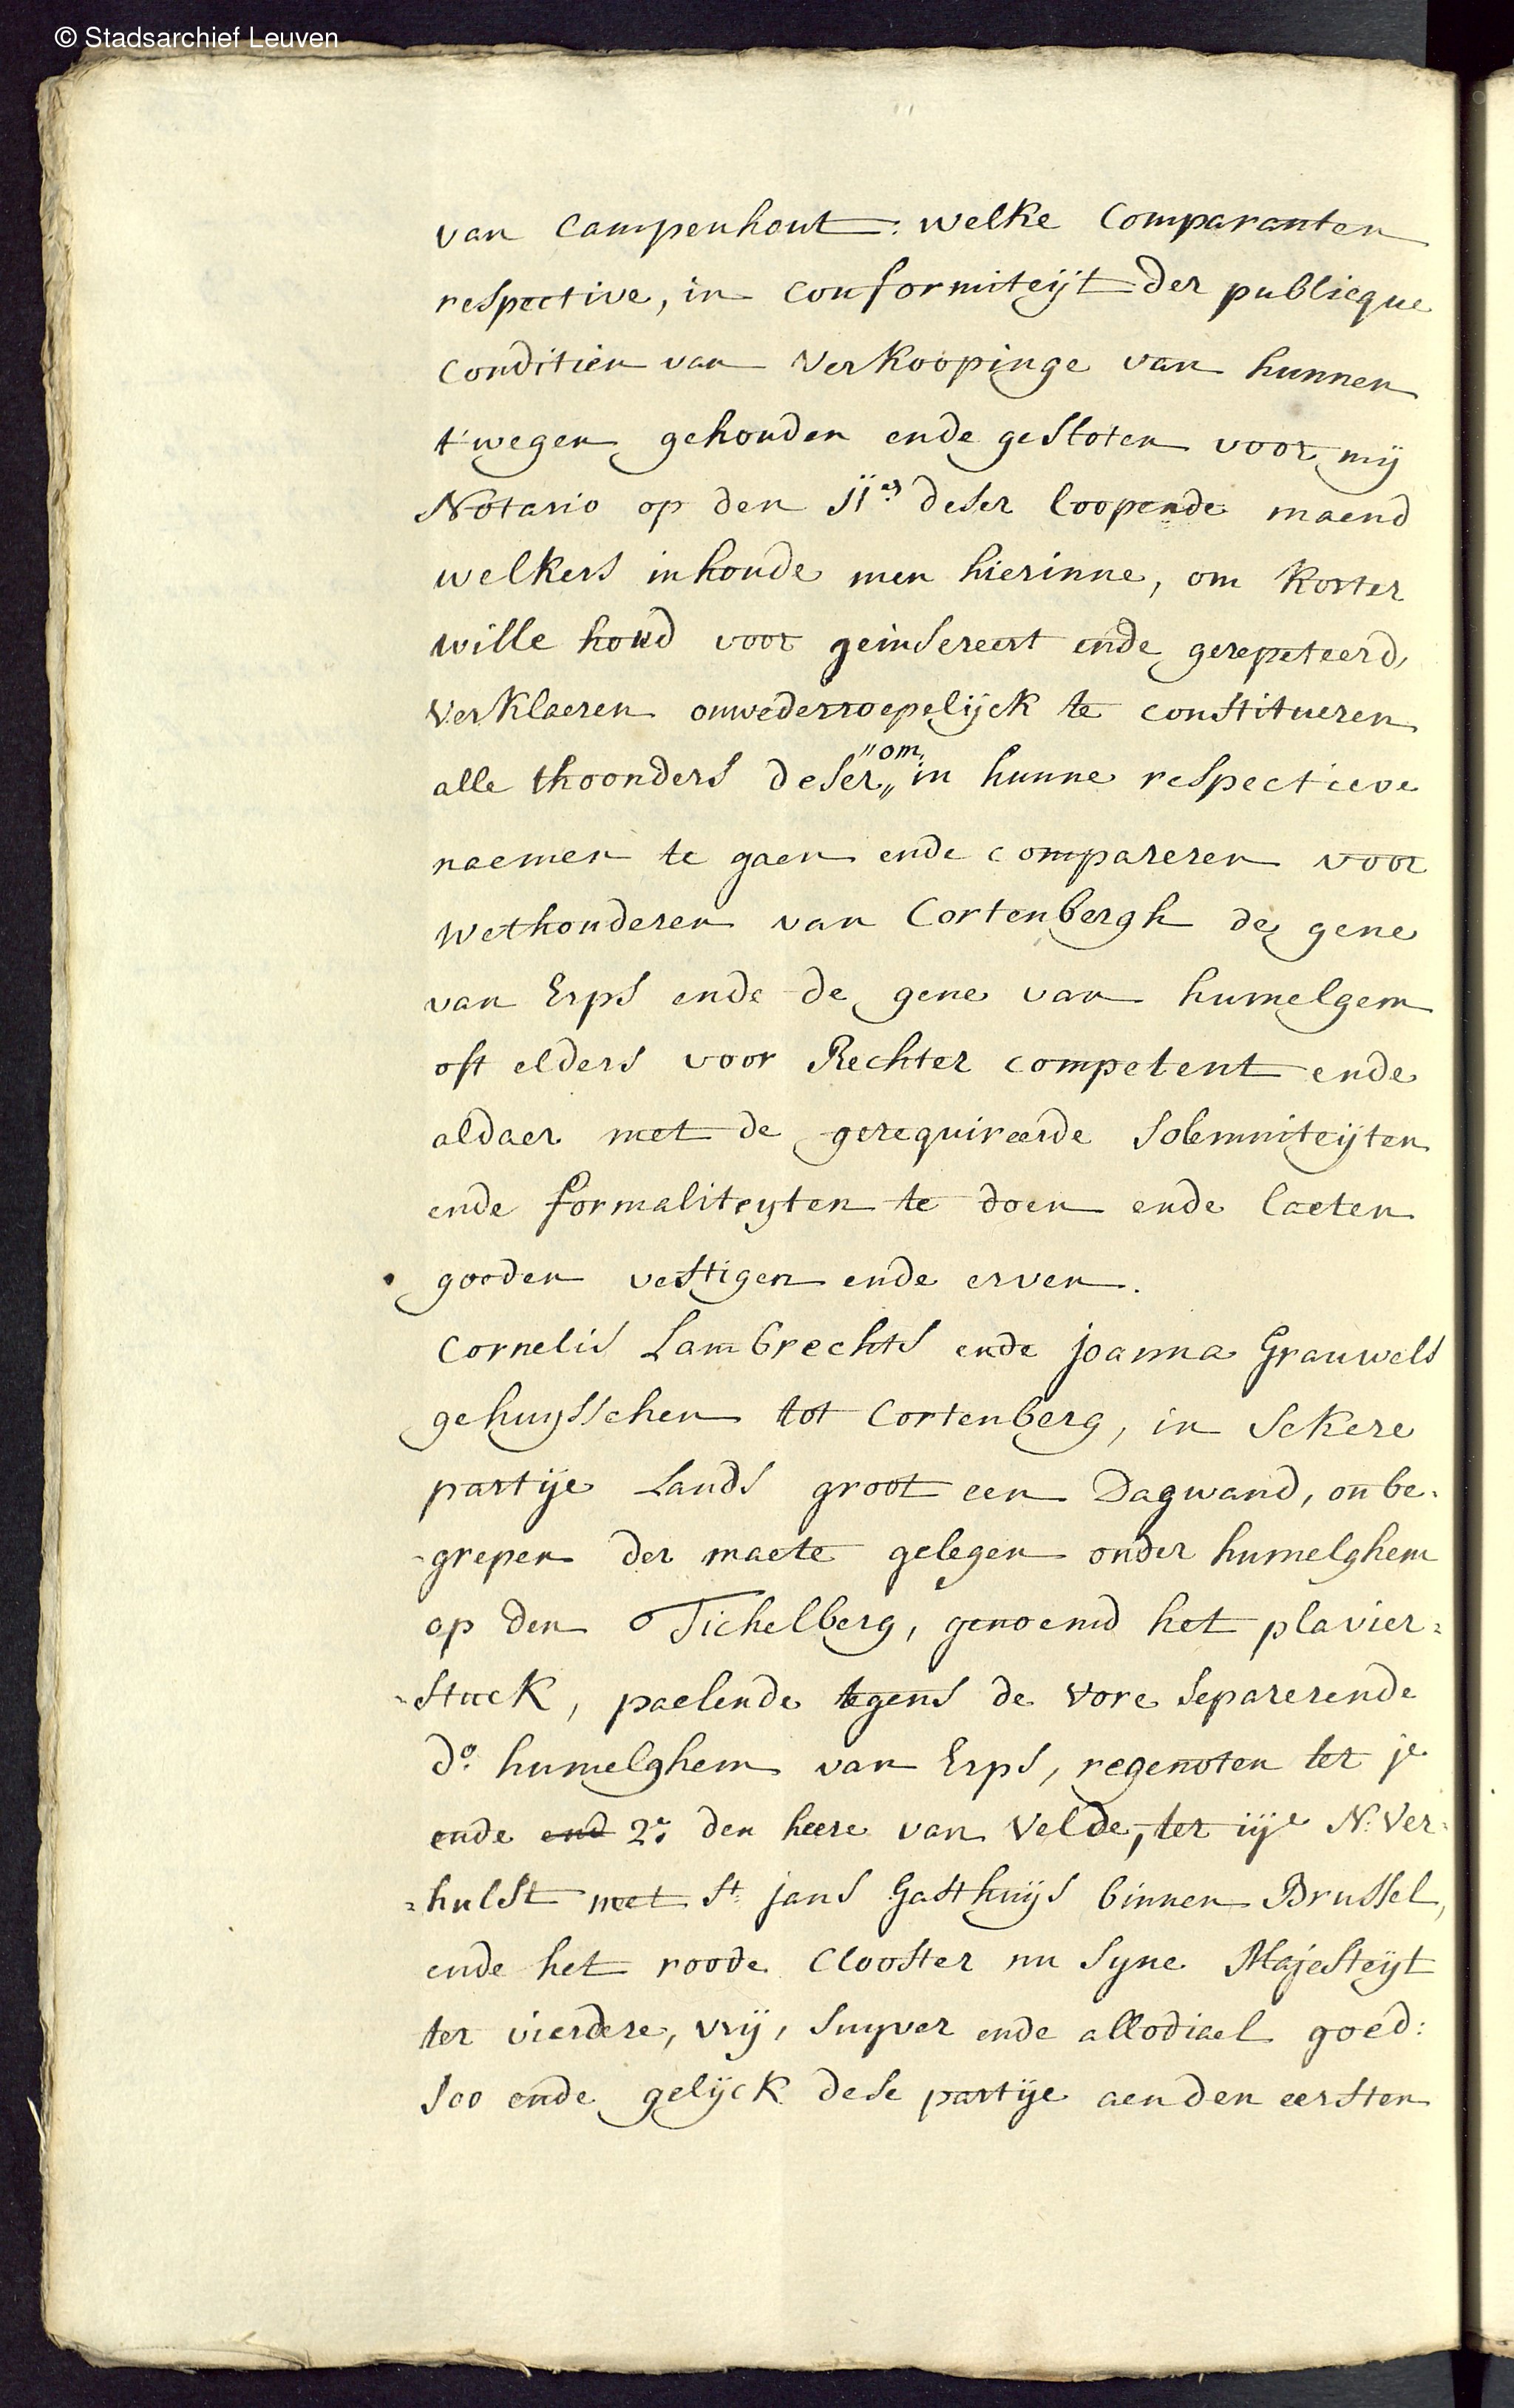 © Stadsarchief Leuven
van Campenhout: welke Comparanten
respective, in conformiteijt der publicque
conditien van verkoopinge van hunnen
t'wegen gehouden ende gesloten voor mij
Notario op den 11en deser loopende maend
welkers inhoude men hierinne, om korter
wille houd voor geinsereert ende gerepeteerd,
verklaeren onwederroepelijck te constitueren
alle thoonders deser, "om„ in hunne respectieve
naemen te gaen ende compareren voor
wethouderen van Cortenbergh de gene
van Erps ende de gene van humelgem
oft elders voor Rechter competent ende
aldaer met de gerequireerde solemniteijten
ende formaliteyten te doen ende laeten
goeden vestigen ende erven.
Cornelis Lambrechts ende joanna Grauwels
gehuysschen tot Cortenberg, in sekere
partije Lands groot een Dagwand, onbe-
-grepen der maete gelegen onder humelghem
op den Tichelberg, genoemd het plavier=
=stuck, paelende tegens de vore separerende
do. humelghem van Erps, regenoten ter je
ende end 2e. den heere van Velde, ter iije N: Ver=
=hulst met St. jans Gasthuijs binnen Brussel,
ende het roode Clooster nu syne Majesteijt
ter vierdere, vrij, suyver ende allodiael goed:
soo ende gelijck dese partije aenden eersten